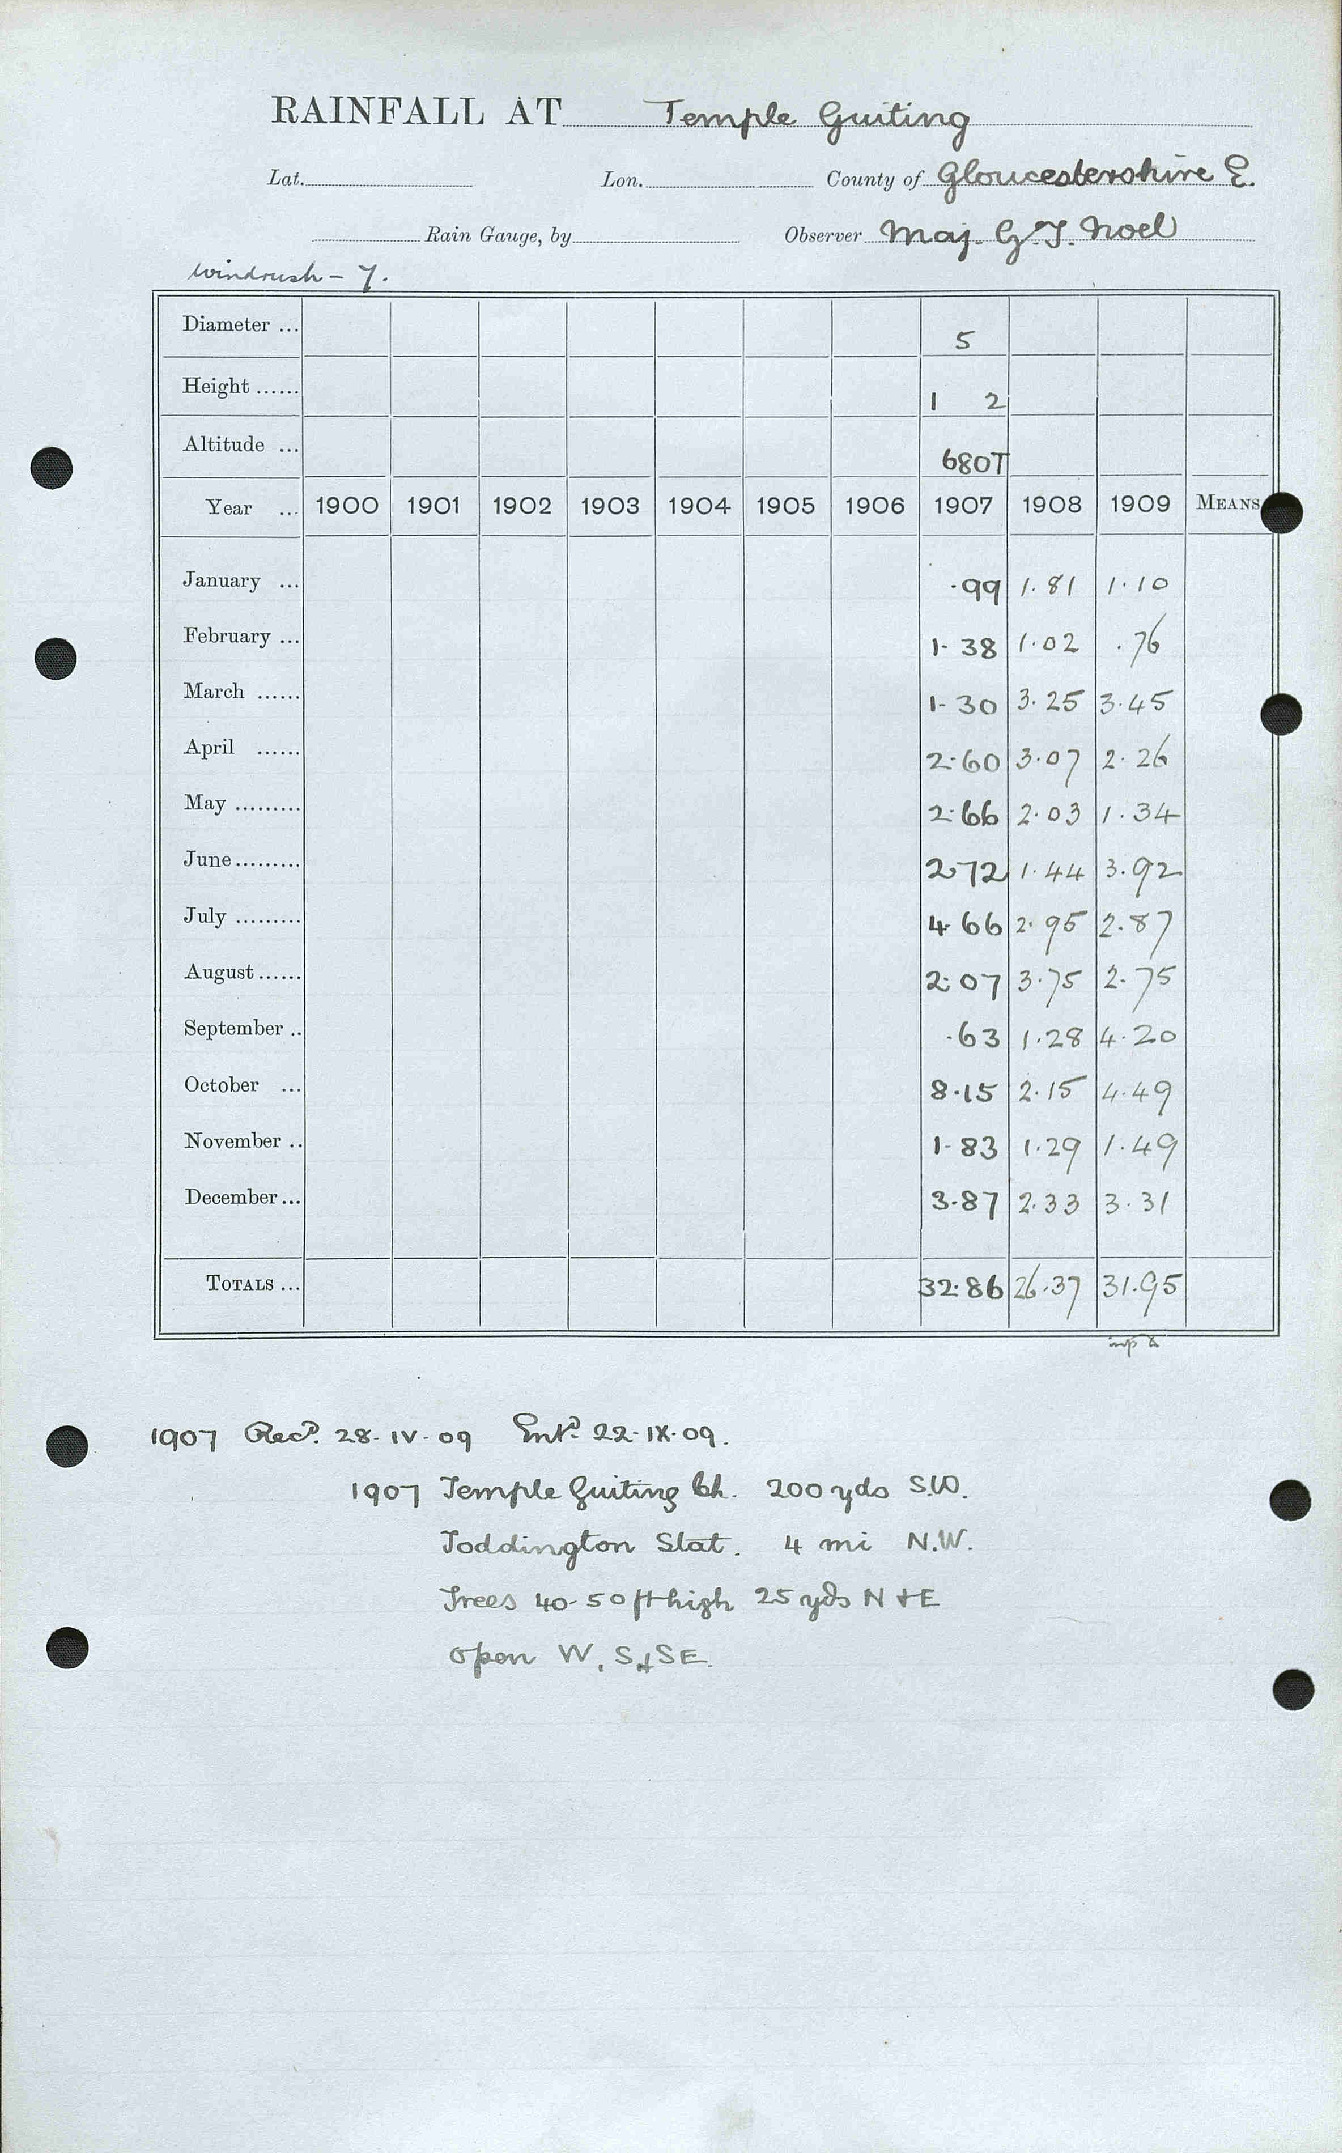 RAINFALL AT Temple Guiting
Lat. Lon. County of Gloucestershire E.
Rain Gauge, by Observer Maj. G. T. Noel
Windrush – 7.
Diameter ... 5
Height ...... 1 2
Altitude ... 680T
Year ... 1900 1901 1902 1903 1904 1905 1906 1907 1908 1909 MEANS
January ... .99 1.81 1.10
February ... 1.38 1.02 .76
March ...... 1.30 3.25 3.45
April ...... 2.60 3.07 2.26
May ......... 2.66 2.03 1.34
June ......... 2.72 1.44 3.92
July ......... 4.66 2.95 2.87
August ...... 2.07 3.75 2.75
September .. .63 1.28 4.20
October ... 8.15 2.15 4.49
November .. 1.83 1.29 1.49
December ... 3.87 2.33 3.31
TOTALS ... 32.86 26.37 31.95
1907 Recd. 28.IV.09 Entd. 22.IX.09.
1907 Temple Guiting Ch. 200 yds S.W.
Toddington Stat. 4 mi N.W.
Trees 40-50 ft high 25 yds N + E
Open W, S + SE.